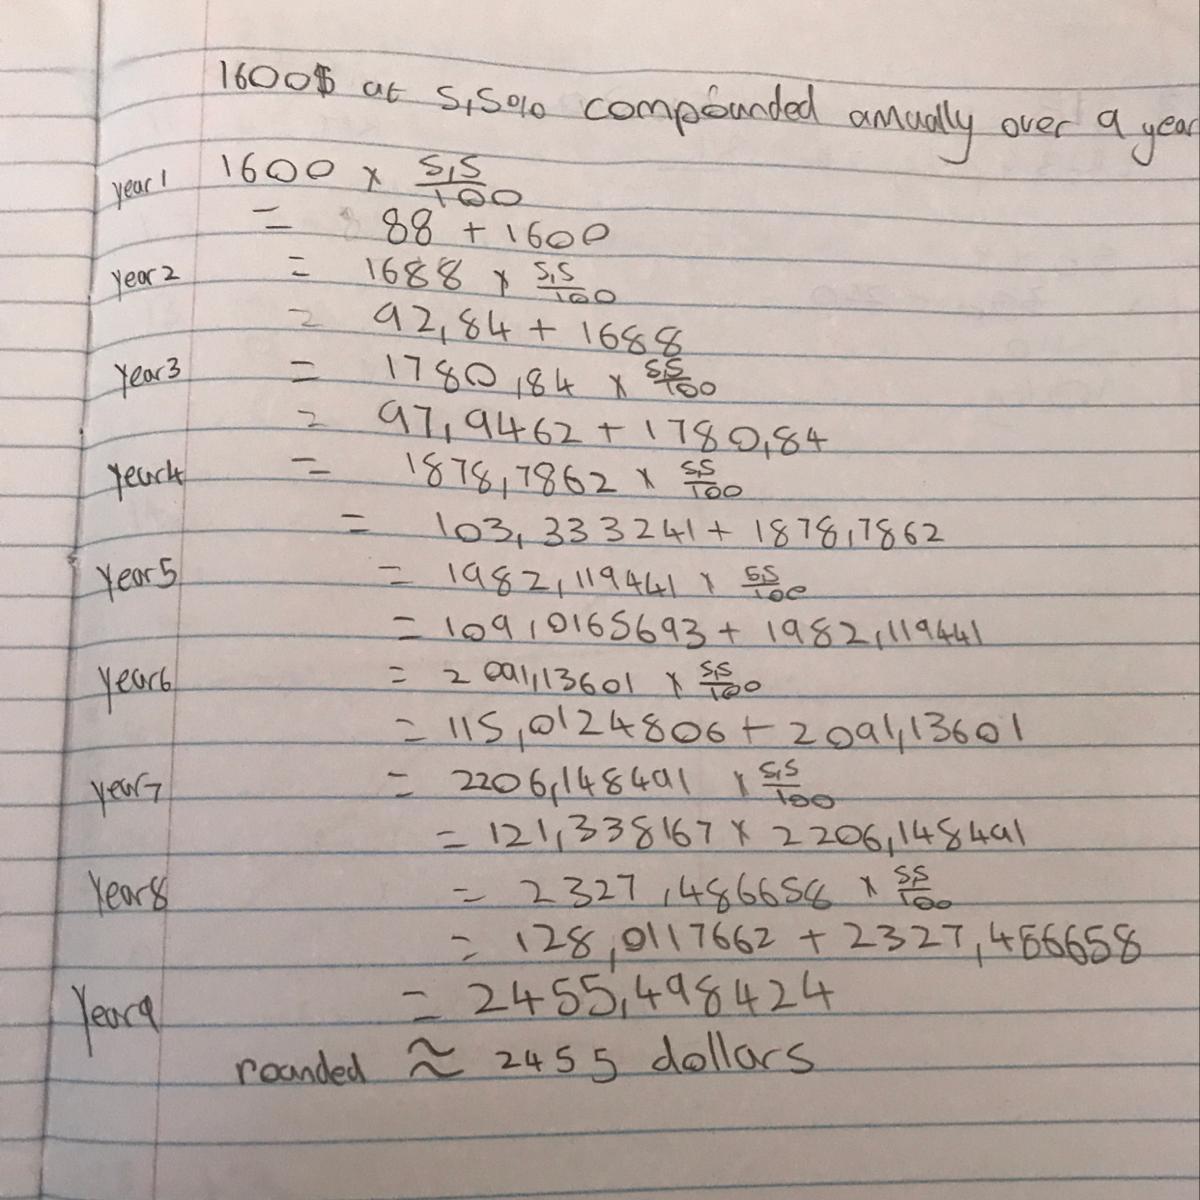 1600$ at 5,5% compounded annually over 9 year
year1 1600 x 5,5/100
= 88 + 1600
year2 = 1688 x 5,5/100
= 92,84 + 1688
Year3 = 1780,84 x 5,5/100
= 97,9462 + 1780,84
Year4 = 1878,7862 x 5,5/100
= 103,333241 + 1878,7862
Year5 = 1982,119441 x 5,5/100
= 109,0165693 + 1982,119441
Year6 = 2091,13601 x 5,5/100
= 115,0124806 + 2091,13601
year7 = 2206,148491 x 5,5/100
= 121,338167 x 2206,148491
Year8 = 2327,486658 x 5,5/100
= 128,0117662 + 2327,486658
Year9 = 2455,498424
rounded ≈ 2455 dollars